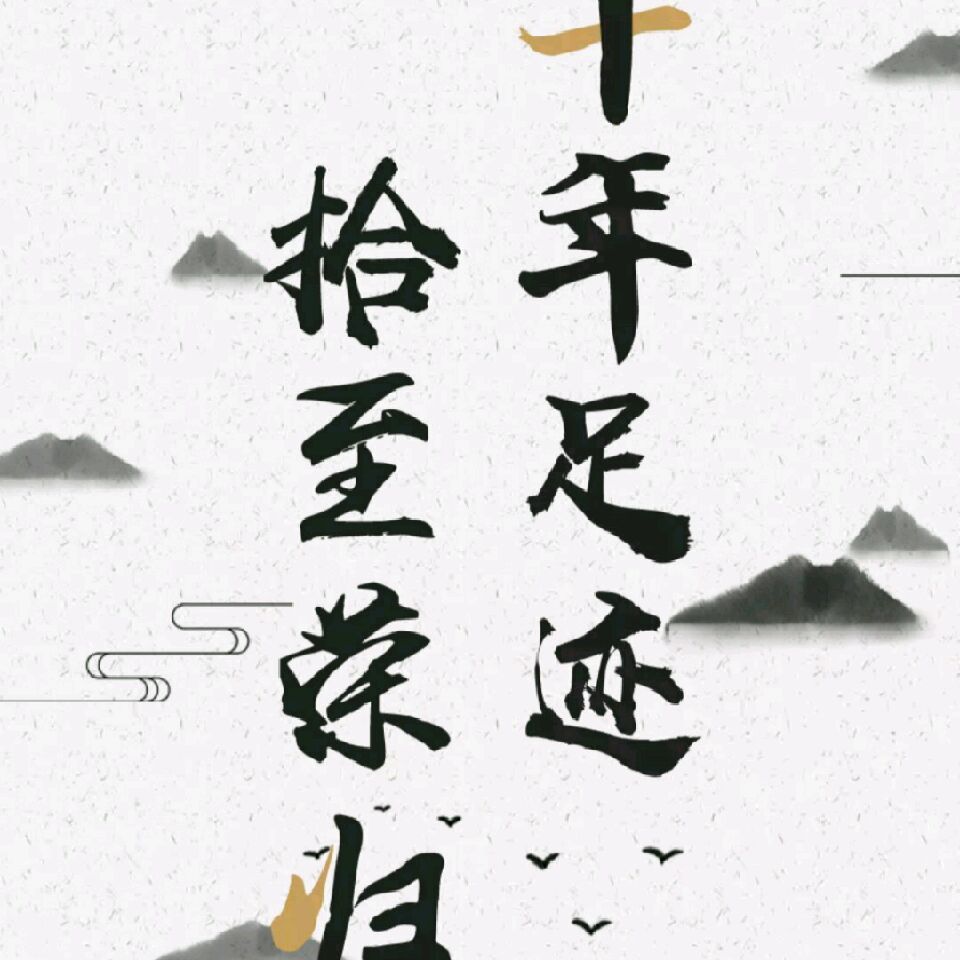 十年足迹
拾至荣归